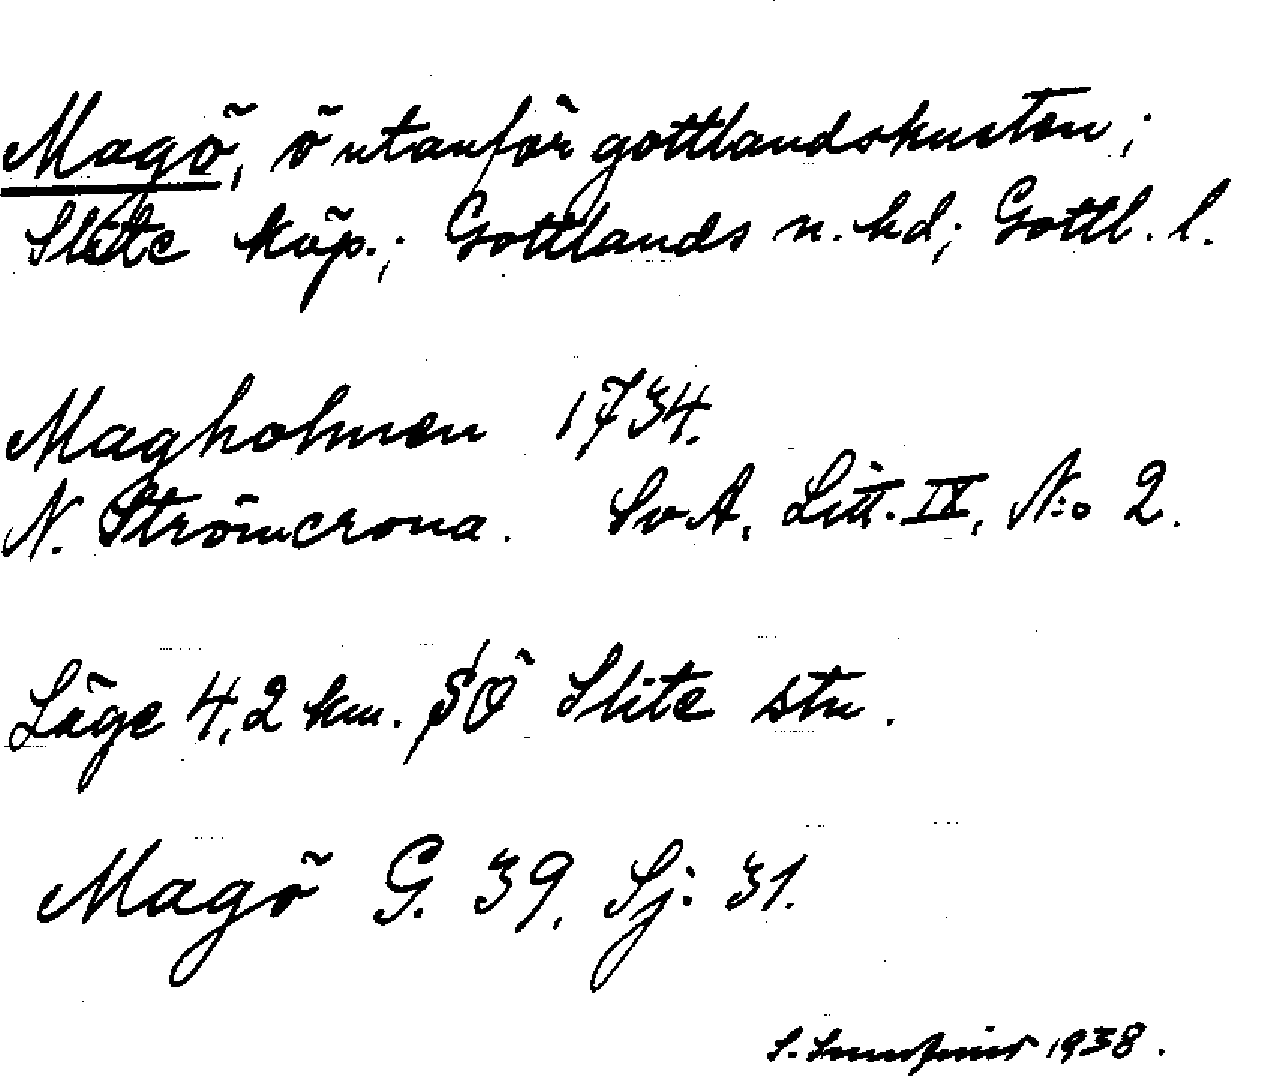 Magö, ö utanför gottlandskusten;
Slite köp.; Gottlands n. hd; Gottl. l.
Magholmen 1734.
N. Strömcrona. SvA, Litt. IX, N:o 2.
Läge 4,2 km. SÖ Slite stn.
Magö G. 39, Sj. 31.
S. 1938.